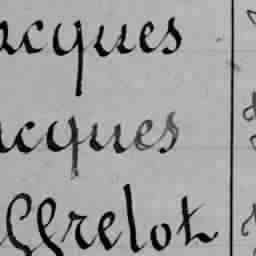 acques
acques
ffrelot